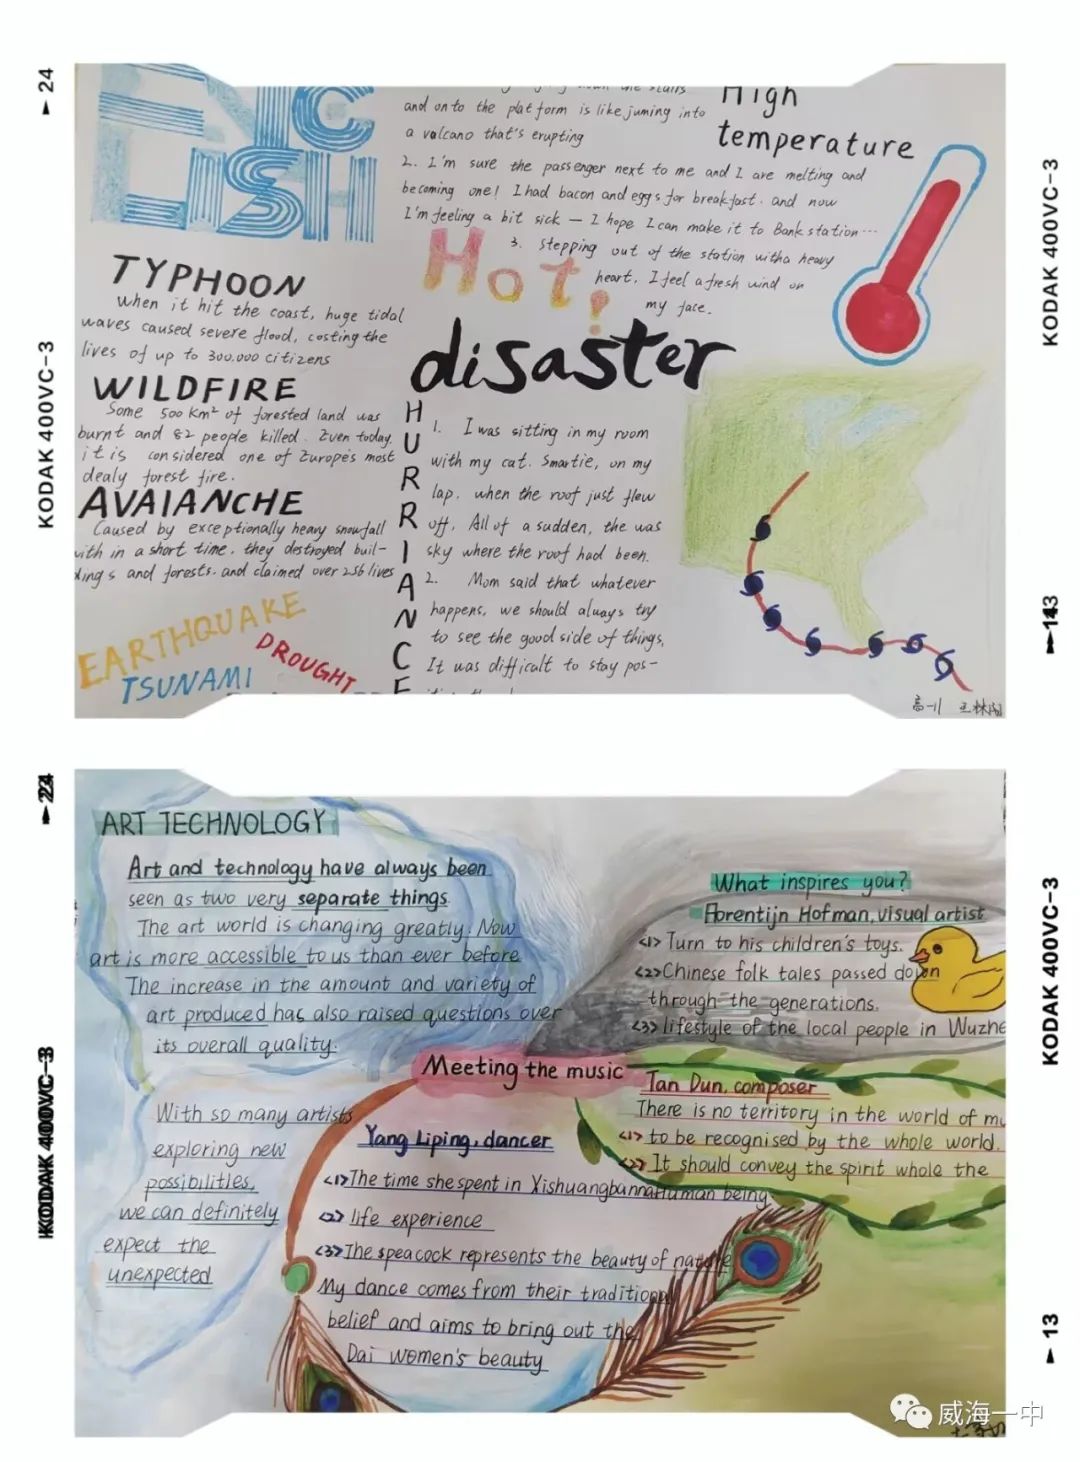 24
KODAK 400VC-3
KODAK 400VC-3
ENGLISH
and onto the platform is like juming into
a volcano that's erupting
2. I'm sure the passenger next to me and I are melting and
becoming one! I had bacon and eggs for breakfast. and now
I'm feeling a bit sick — I hope I can make it to Bank station…
3. Stepping out of the station with a heavy
heart, I feel a fresh wind on
my face.
High
temperature
Hot!
disaster
TYPHOON
When it hit the coast, huge tidal
waves caused severe flood, costing the
lives of up to 300.000 citizens
WILDFIRE
Some 500 km² of forested land was
burnt and 82 people killed. Even today,
it is considered one of Europe's most
dealy forest fire.
AVAIANCHE
Caused by exceptionally heavy snowfall
with in a short time. they destroyed buil-
dings and forests. and claimed over 256 lives
EARTHQUAKE
TSUNAMI
DROUGHT
HURRIANCE
1. I was sitting in my room
with my cat. Smartie, on my
lap, when the roof just flew
off. All of a sudden, the was
sky where the roof had been.
2. Mom said that whatever
happens, we should always try
to see the good side of things,
It was difficult to stay pos-
高一11
KODAK 400VC-3
ART TECHNOLOGY
Art and technology have always been
seen as two very separate things.
The art world is changing greatly. Now
art is more accessible to us than ever before
The increase in the amount and variety of
art produced has also raised questions over
its overall quality.
With so many artists
exploring new
possibilities,
we can definitely
expect the
unexpected
What inspires you?
Florentijn Hofman, visual artist
<1> Turn to his children's toys.
<2> Chinese folk tales passed down
through the generations.
<3> lifestyle of the local people in Wuzhe
Meeting the music
Tan Dun, composer
There is no territory in the world of mu
<1> to be recognised by the whole world.
<2> It should convey the spirit whole the
Yang Liping, dancer
<1> The time she spent in Xishuangbanna Human being
<2> life experience
<3> The speacock represents the beauty of nature
My dance comes from their traditional
belief and aims to bring out the
Dai women's beauty
KODAK 400VC-3
13
威海一中